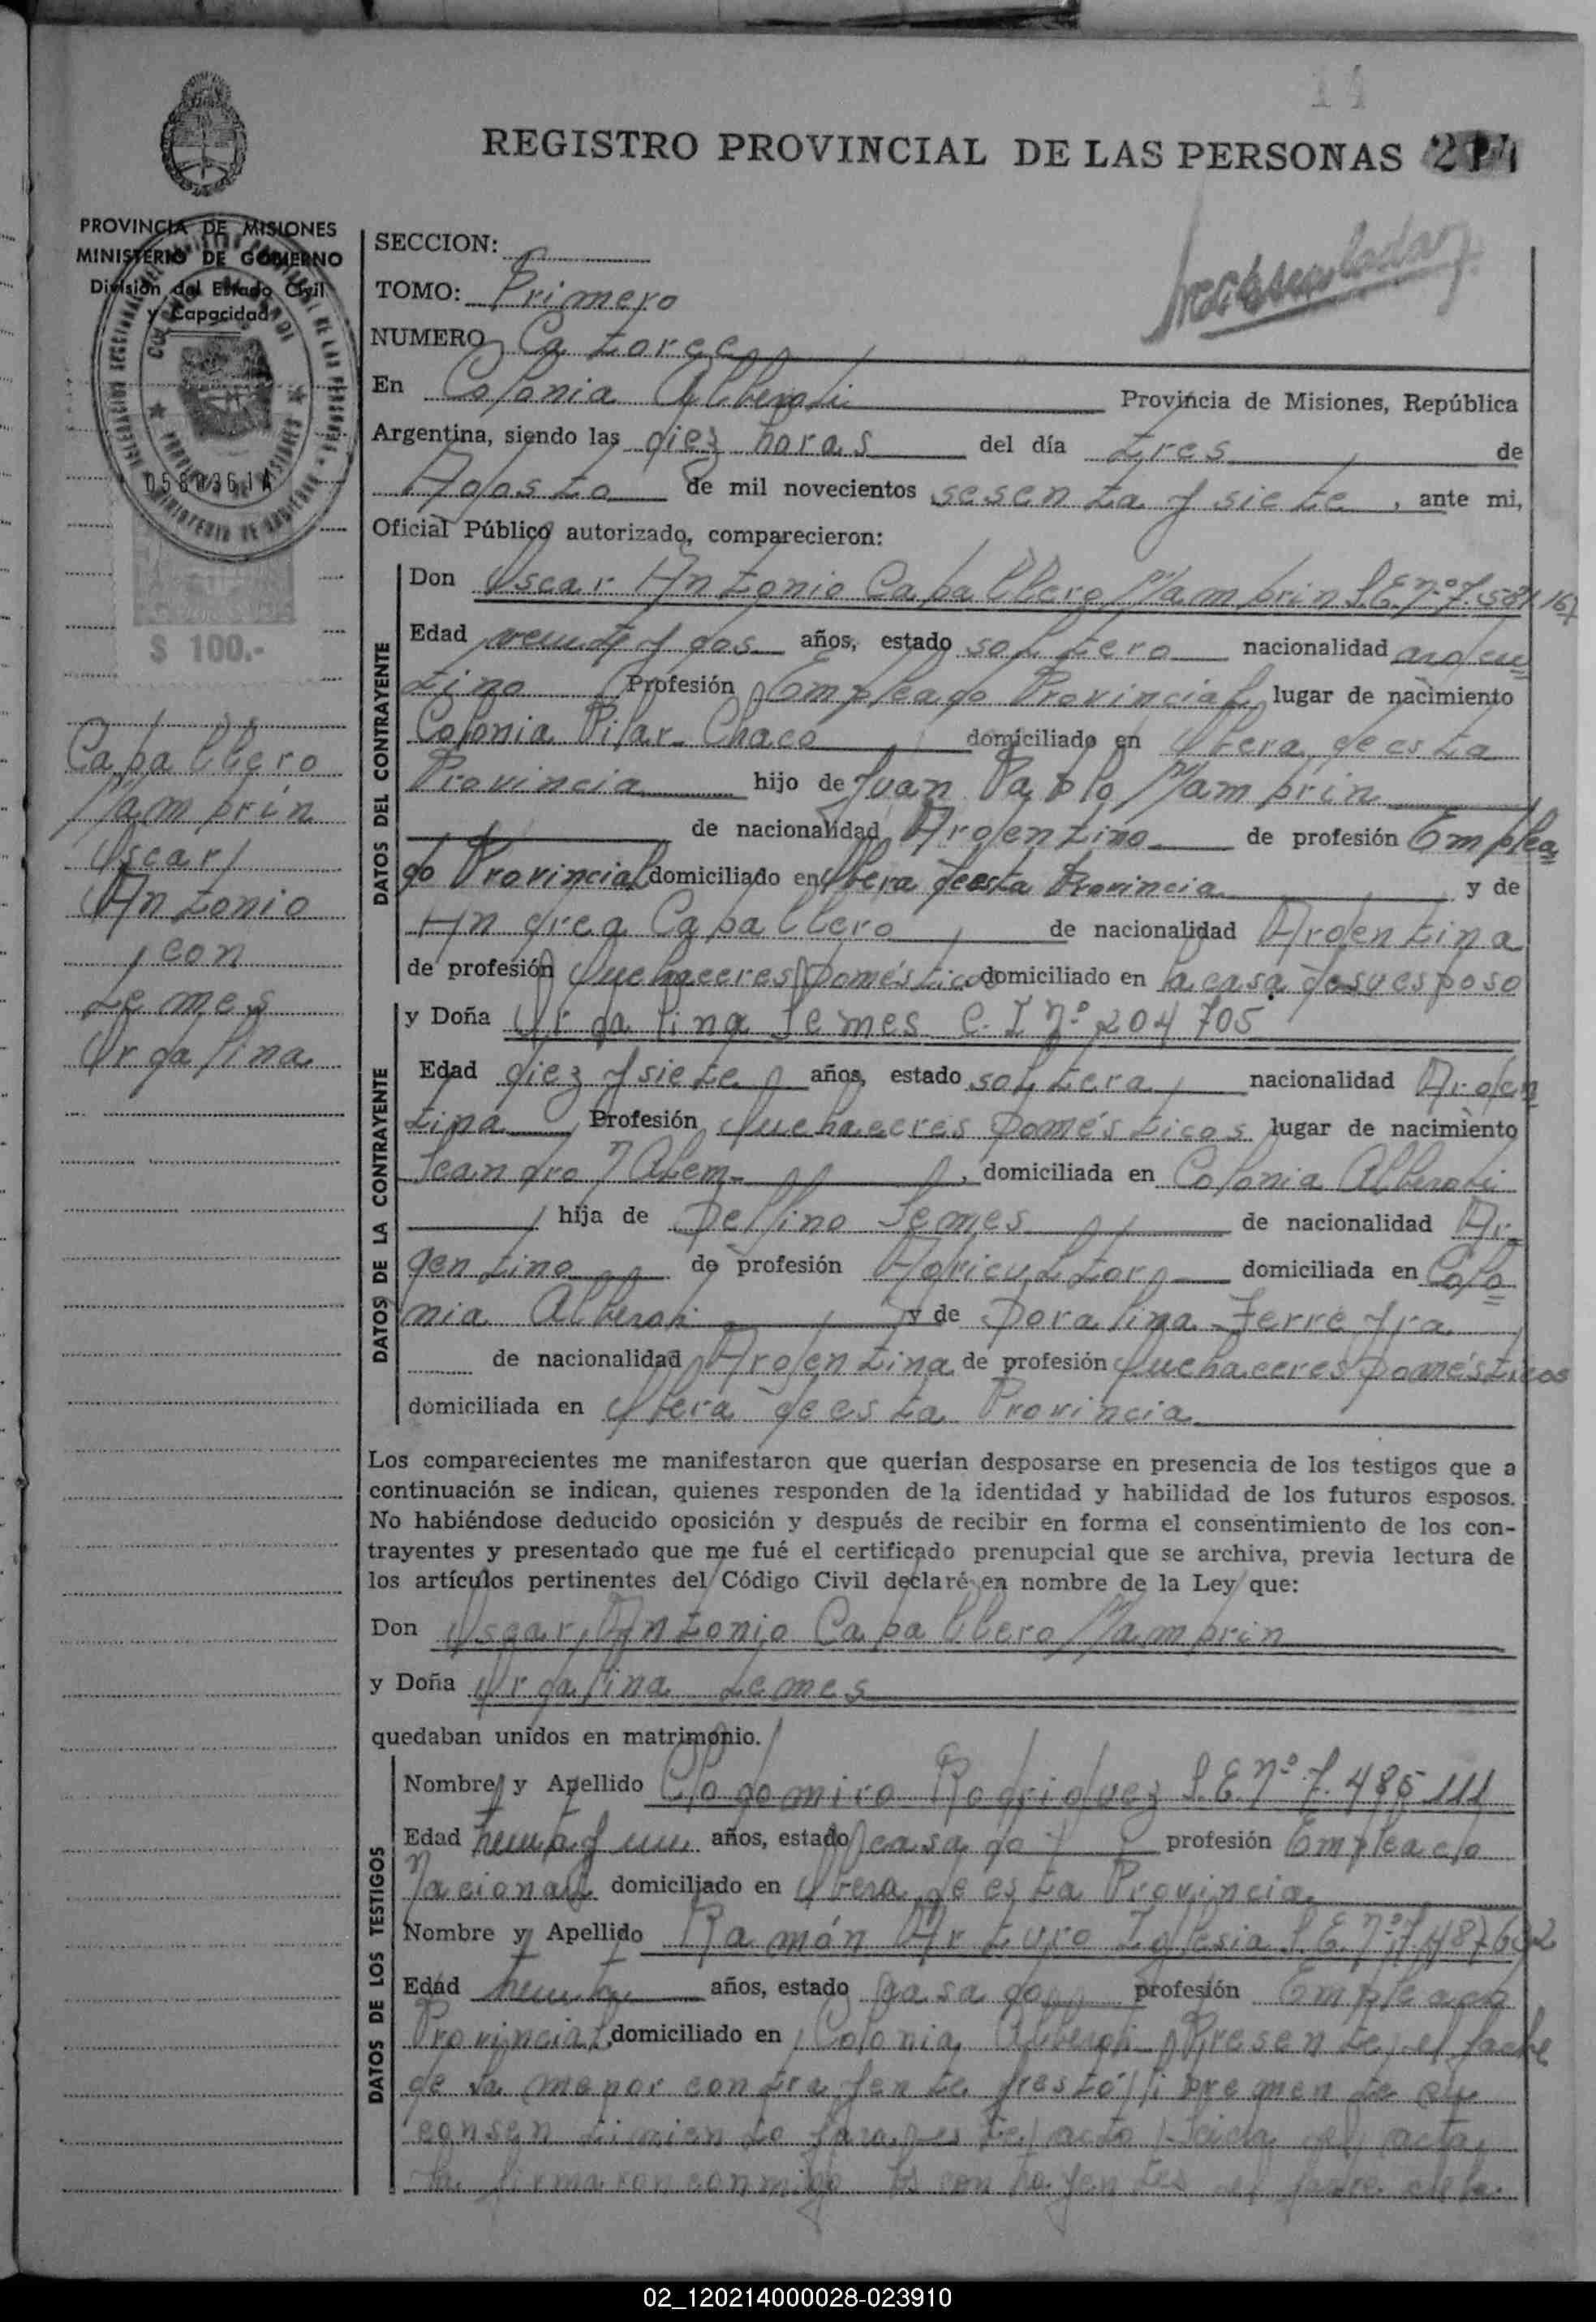 14
REGISTRO PROVINCIAL DE LAS PERSONAS
PROVINCIA DE MISIONES
MINISTERIO DE GOBIERNO
División del Estado Civil
y Capacidad
0580361A
$ 100.-
Caballero
Mamprin
Oscar
Antonio
con
Lemes
Orgalina
SECCION:
TOMO: Primero
NUMERO Catorce
En Colonia Alberdi Provincia de Misiones, República
Argentina, siendo las diez horas del día tres de
Agosto de mil novecientos sesenta y siete, ante mi,
Oficial Público autorizado, comparecieron:
DATOS DEL CONTRAYENTE
Don Oscar Antonio Caballero Mamprin L.E. Nº 7.
Edad veinte y dos años, estado soltero nacionalidad argen
tino Profesión Empleado Provincial lugar de nacimiento
Colonia Pilar-Chaco domiciliado en Obera de esta
Provincia hijo de Juan Pablo Mamprin
de nacionalidad Argentino de profesión Emplea
do Provincial domiciliado en Obera de esta Provincia y de
Andrea Caballero de nacionalidad Argentina
de profesión Quehaceres Domésticos domiciliado en la casa de su esposo
DATOS DE LA CONTRAYENTE
y Doña Orgalina Lemes C. I Nº 204 705
Edad diez y siete años, estado soltera nacionalidad Argen
tina Profesión Quehaceres Domésticos lugar de nacimiento
Leandro N Alem- domiciliada en Colonia Alberdi
hija de Delfino Lemes de nacionalidad Ar-
gentino de profesión Agricultor domiciliada en Colo
nia Alberdi y de Doralina Ferreyra
de nacionalidad Argentina de profesión Quehaceres Domésticos
domiciliada en Obera de esta Provincia
Los comparecientes me manifestaron que querian desposarse en presencia de los testigos que a
continuación se indican, quienes responden de la identidad y habilidad de los futuros esposos.
No habiéndose deducido oposición y después de recibir en forma el consentimiento de los con-
trayentes y presentado que me fué el certificado prenupcial que se archiva, previa lectura de
los artículos pertinentes del Código Civil declaré en nombre de la Ley que:
Don Oscar Antonio Caballero Mamprin
y Doña Orgalina Lemes
quedaban unidos en matrimonio.
DATOS DE LOS TESTIGOS
Nombre y Apellido Clodomiro Rodriguez L.E. Nº 7.485 111
Edad treinta y un años, estado casado profesión Empleado
Nacional domiciliado en Obera de esta Provincia
Nombre y Apellido Ramón Arturo Iglesia L.E. Nº 7.487632
Edad treinta años, estado casado profesión Empleado
Provincial domiciliado en Colonia Alberdi Presente el padre
de la menor contrayente prestó libremente su
consentimiento para este acto Leida el acta
la firmaron conmigo los contrayentes el padre de la
02_120214000028-023910